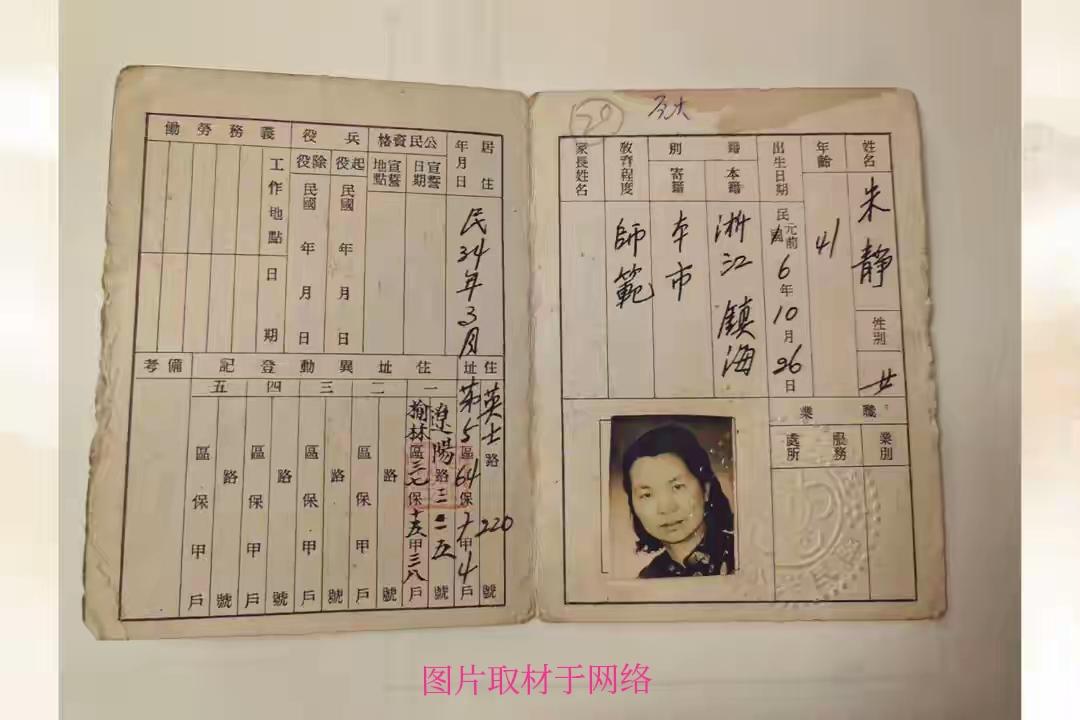 姓名
朱靜
性別
女
年齡
41
出生日期
民國元前6年10月26日
籍別
本籍
浙江鎮海
寄籍
本市
教育程度
師範
家長姓名
職業
業別
服務處所
20
居住年月日
民34年3月
公民資格
宣誓日期
宣誓地點
兵役
起役
民國 年 月 日
除役
民國 年 月 日
義務勞働
工作地點
日期
住址
英士路220號
第5區64保 甲4戶
住址異動登記
一
遼陽路
榆林區 保十五甲三八戶
二
路 號
區 保 甲 戶
三
路 號
區 保 甲 戶
四
路 號
區 保 甲 戶
五
路 號
區 保 甲 戶
備考
图片取材于网络